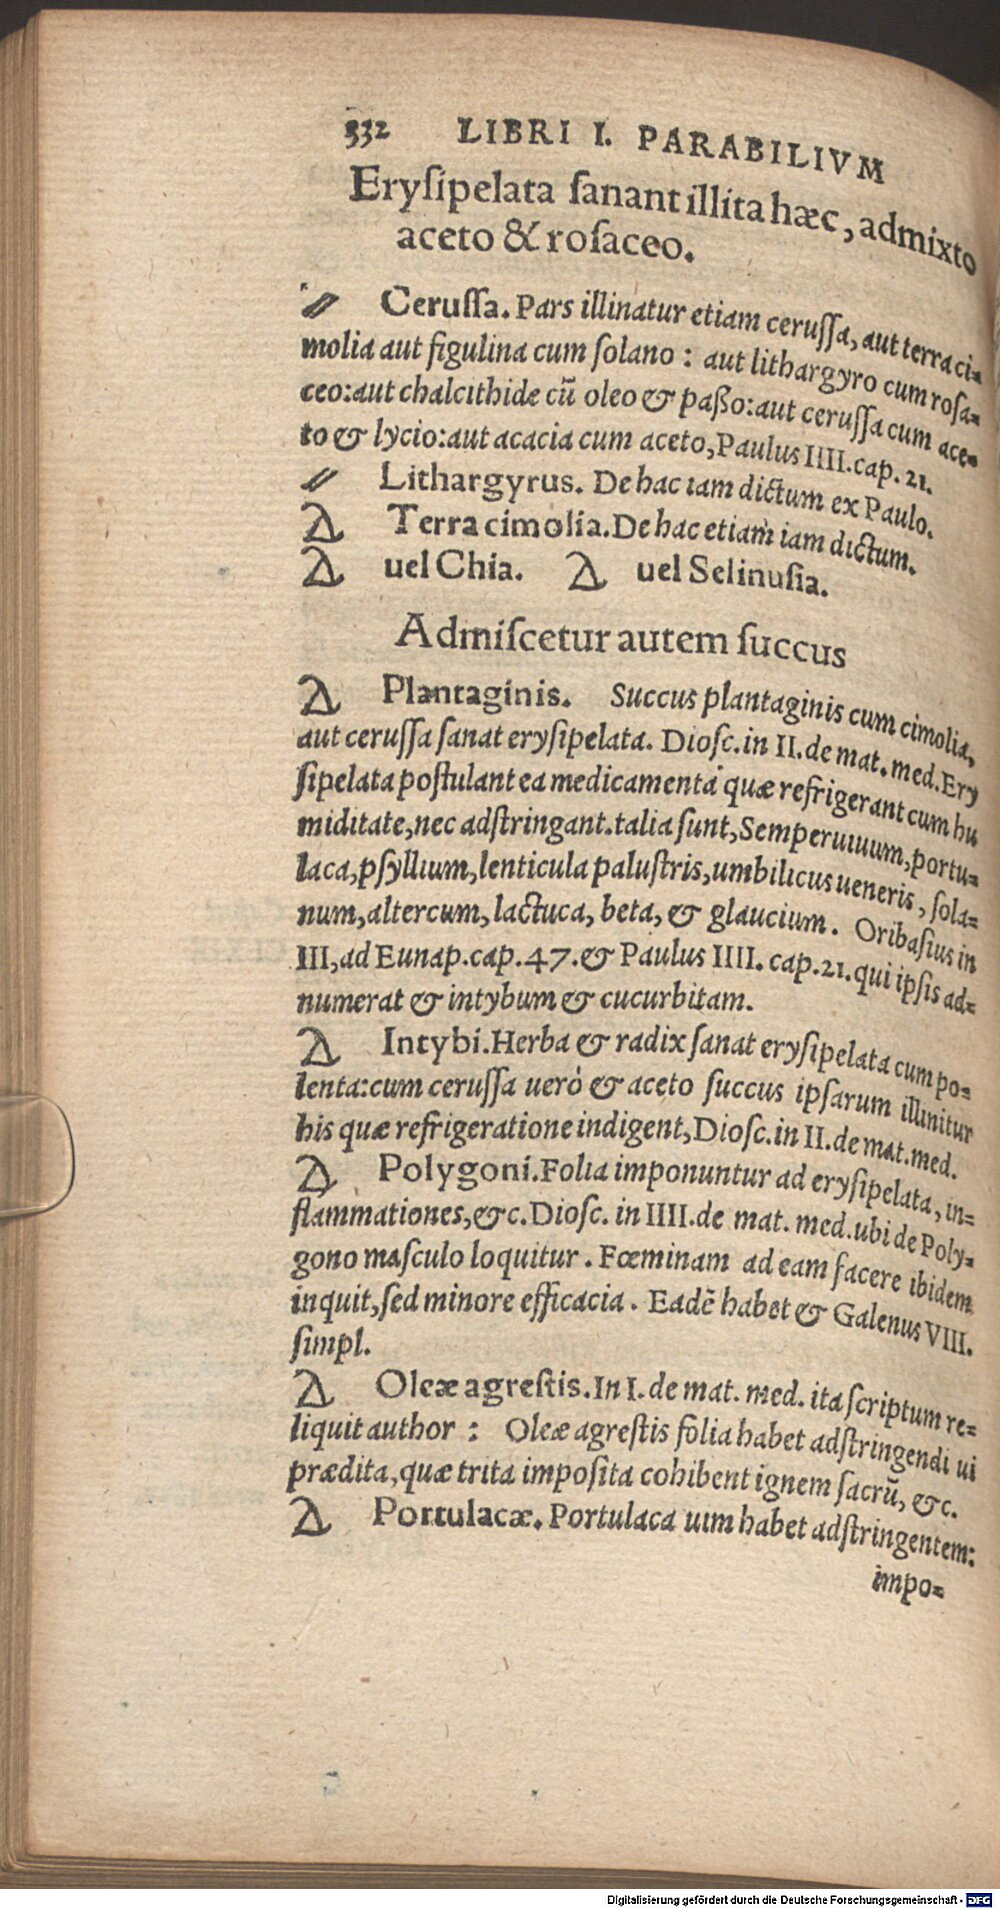 332 LIBRI I. PARABILIVM
Eryſipelata ſanant illita hæc, admixto
aceto & roſaceo.
Ceruſſa. Pars illinatur etiam ceruſſa, aut terra ci=
molia aut figulina cum ſolano : aut lithargyro cum roſa=
ceo: aut chalcithide cū oleo & paßo: aut ceruſſa cum ace=
to & lycio: aut acacia cum aceto, Paulus IIII. cap. 21.
Lithargyrus. De hac iam dictum ex Paulo.
Terra cimolia. De hac etiam iam dictum.
uel Chia. uel Selinuſia.
Admiſcetur autem ſuccus
Plantaginis. Succus plantaginis cum cimolia,
aut ceruſſa ſanat eryſipelata. Dioſc. in II. de mat. med. Ery
ſipelata poſtulant ea medicamenta quæ refrigerant cum hu
miditate, nec adſtringant. talia ſunt, Semperuiuum, portu=
laca, pſyllium, lenticula paluſtris, umbilicus ueneris, ſola=
num, altercum, lactuca, beta, & glaucium. Oribaſius in
III, ad Eunap. cap. 47. & Paulus IIII. cap. 21. qui ipſis ad=
numerat & intybum & cucurbitam.
Intybi. Herba & radix ſanat eryſipelata cum po=
lenta: cum ceruſſa uerò & aceto ſuccus ipſarum illinitur
his quæ refrigeratione indigent, Dioſc. in II. de mat. med.
Polygoni. Folia imponuntur ad eryſipelata, in=
flammationes, &c. Dioſc. in IIII. de mat. med. ubi de Poly=
gono maſculo loquitur. Fœminam ad eam facere ibidem
inquit, ſed minore efficacia. Eadē habet & Galenus VIII.
ſimpl.
Oleæ agreſtis. In I. de mat. med. ita ſcriptum re=
liquit author : Oleæ agreſtis folia habet adſtringendi ui
prædita, quæ trita impoſita cohibent ignem ſacrū, &c.
Portulacæ. Portulaca uim habet adſtringentem:
impo=
Digitalisierung gefördert durch die Deutsche Forschungsgemeinschaft - DFG